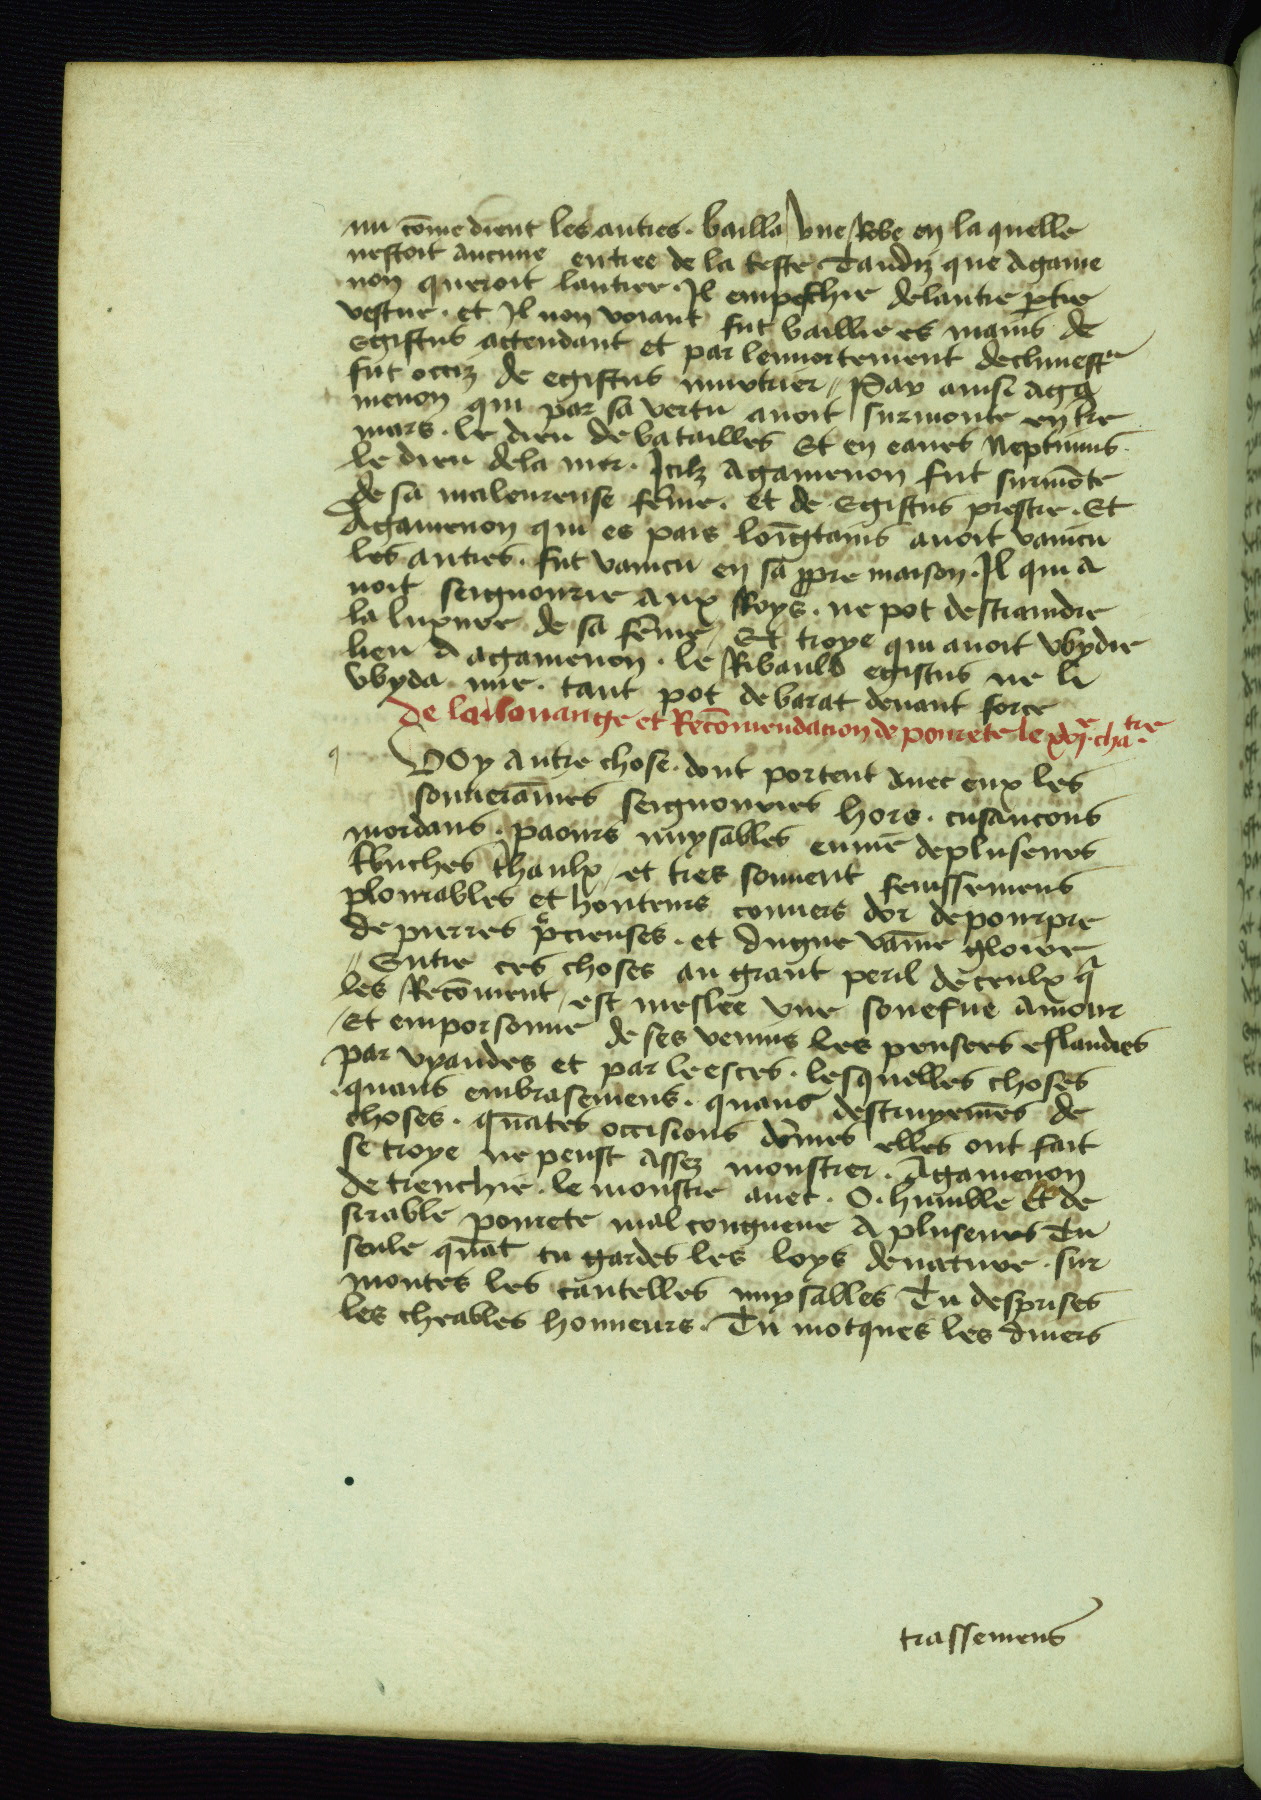 nu cōme dient les autres . bailla vne Robe en laquelle
nestoit aucune entree de la teste Tandiz que Agame
non queroit lantree . Il empeschie delautre ꝑtie
vestue . et Il non voiant fut baillie es mains de
Egistus actendant et par lennortement declimestre
fut occiz de egistus murtrier / Par ainsi aga
menon qui par sa vertu auoit surmonte en tre
mars . le dieu de batailles Et en eaues Neptunus .
le dieu dela mer . Icilz Agamenon fut surmōte
de sa maleureuse fēme . et de Egistus prestre . Et
Agamenon qui es pais loingtains auoit vaincu
les autres . fut vaincu en sa ꝓpre maison . Il qui a
uoit seignourie aux Roys . ne pot destraindre
la luxure de sa fēme / Et troye qui auoit vbydie
lieu A agamenon . le Ribauld egistus ne li
vbyda mie . tant pot de barat deuant force
De la louange et Recōmendacion de pourete le xvjᵉ . chatre .
VOy Autre chose . dont portent auec eux les
souuerāines seignouries hors . cusancons
mordans . paours nuysables enuie de pluseurs
thaulx / et tres souuent fenissemens
plourables et honteurs conuers dor de pourpre
de pierres p̄cieuses . et dugne vāine gloire
// Entre ces choses au grant peril de ceulx q̄
les Recōment / est meslee vne souefue Amour
/ Et emporsonne de ses venins les pensees eslandies
par vyandes et par leesces . lesquelles choses
. quans embrasemens . quans destruyemēs de
choses . quātes occisions dōmes elles ont fait
se troye ne peust Assez monstrer . Agamenon
de trenchie . le monstre auec . O . humble Et de
sirable pourete mal congneue A pluseurs Tu
seule quāt tu gardes les loys de nature . sur
montes les cautelles nuysables Tu desprises
les cheables honneurs . Tu motques les diuers
trassemens